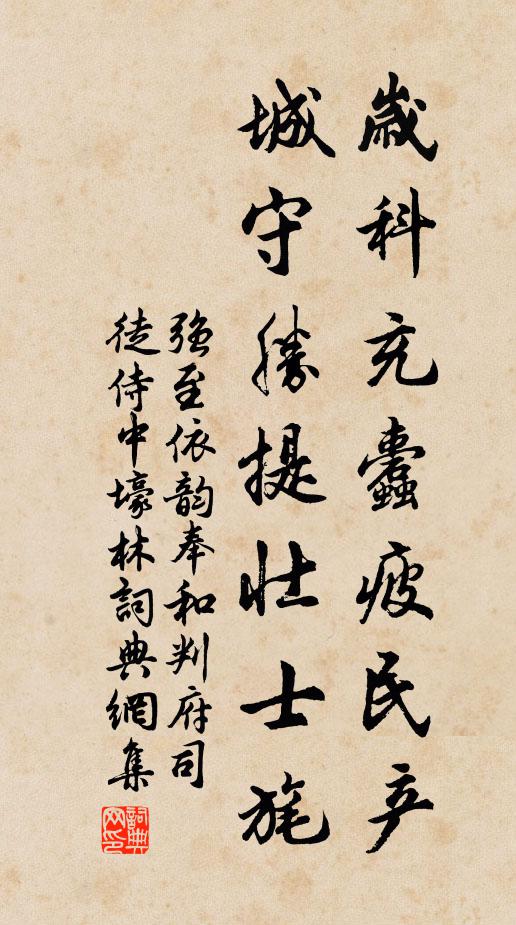 歲科充蠹疲民产
城守勝提壮士旄
强至依韵奉和判府司
徒侍中壕林詞典網集
詞典网印